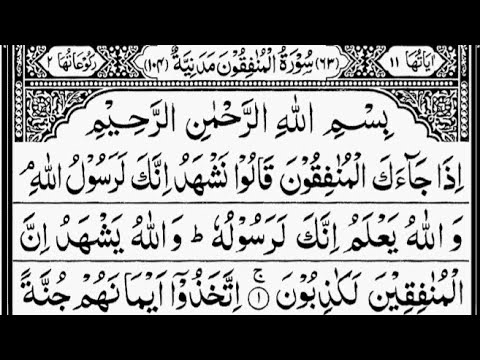 اٰیَاتُهَا ۱۱ (۶۳) سُوْرَةُ الْمُنٰفِقُوْنَ مَدَنِیَّةٌ (۱۰۴) رُكُوْعَاتُهَا ۲
بِسْمِ اللهِ الرَّحْمٰنِ الرَّحِیْمِ
اِذَا جَآءَكَ الْمُنٰفِقُوْنَ قَالُوْا نَشْهَدُ اِنَّكَ لَرَسُوْلُ اللهِ ۘ
وَ اللهُ یَعْلَمُ اِنَّكَ لَرَسُوْلُهٗ ؕ وَ اللهُ یَشْهَدُ اِنَّ
الْمُنٰفِقِیْنَ لَكٰذِبُوْنَ ۚ ۱ اِتَّخَذُوْۤا اَیْمَانَهُمْ جُنَّةً